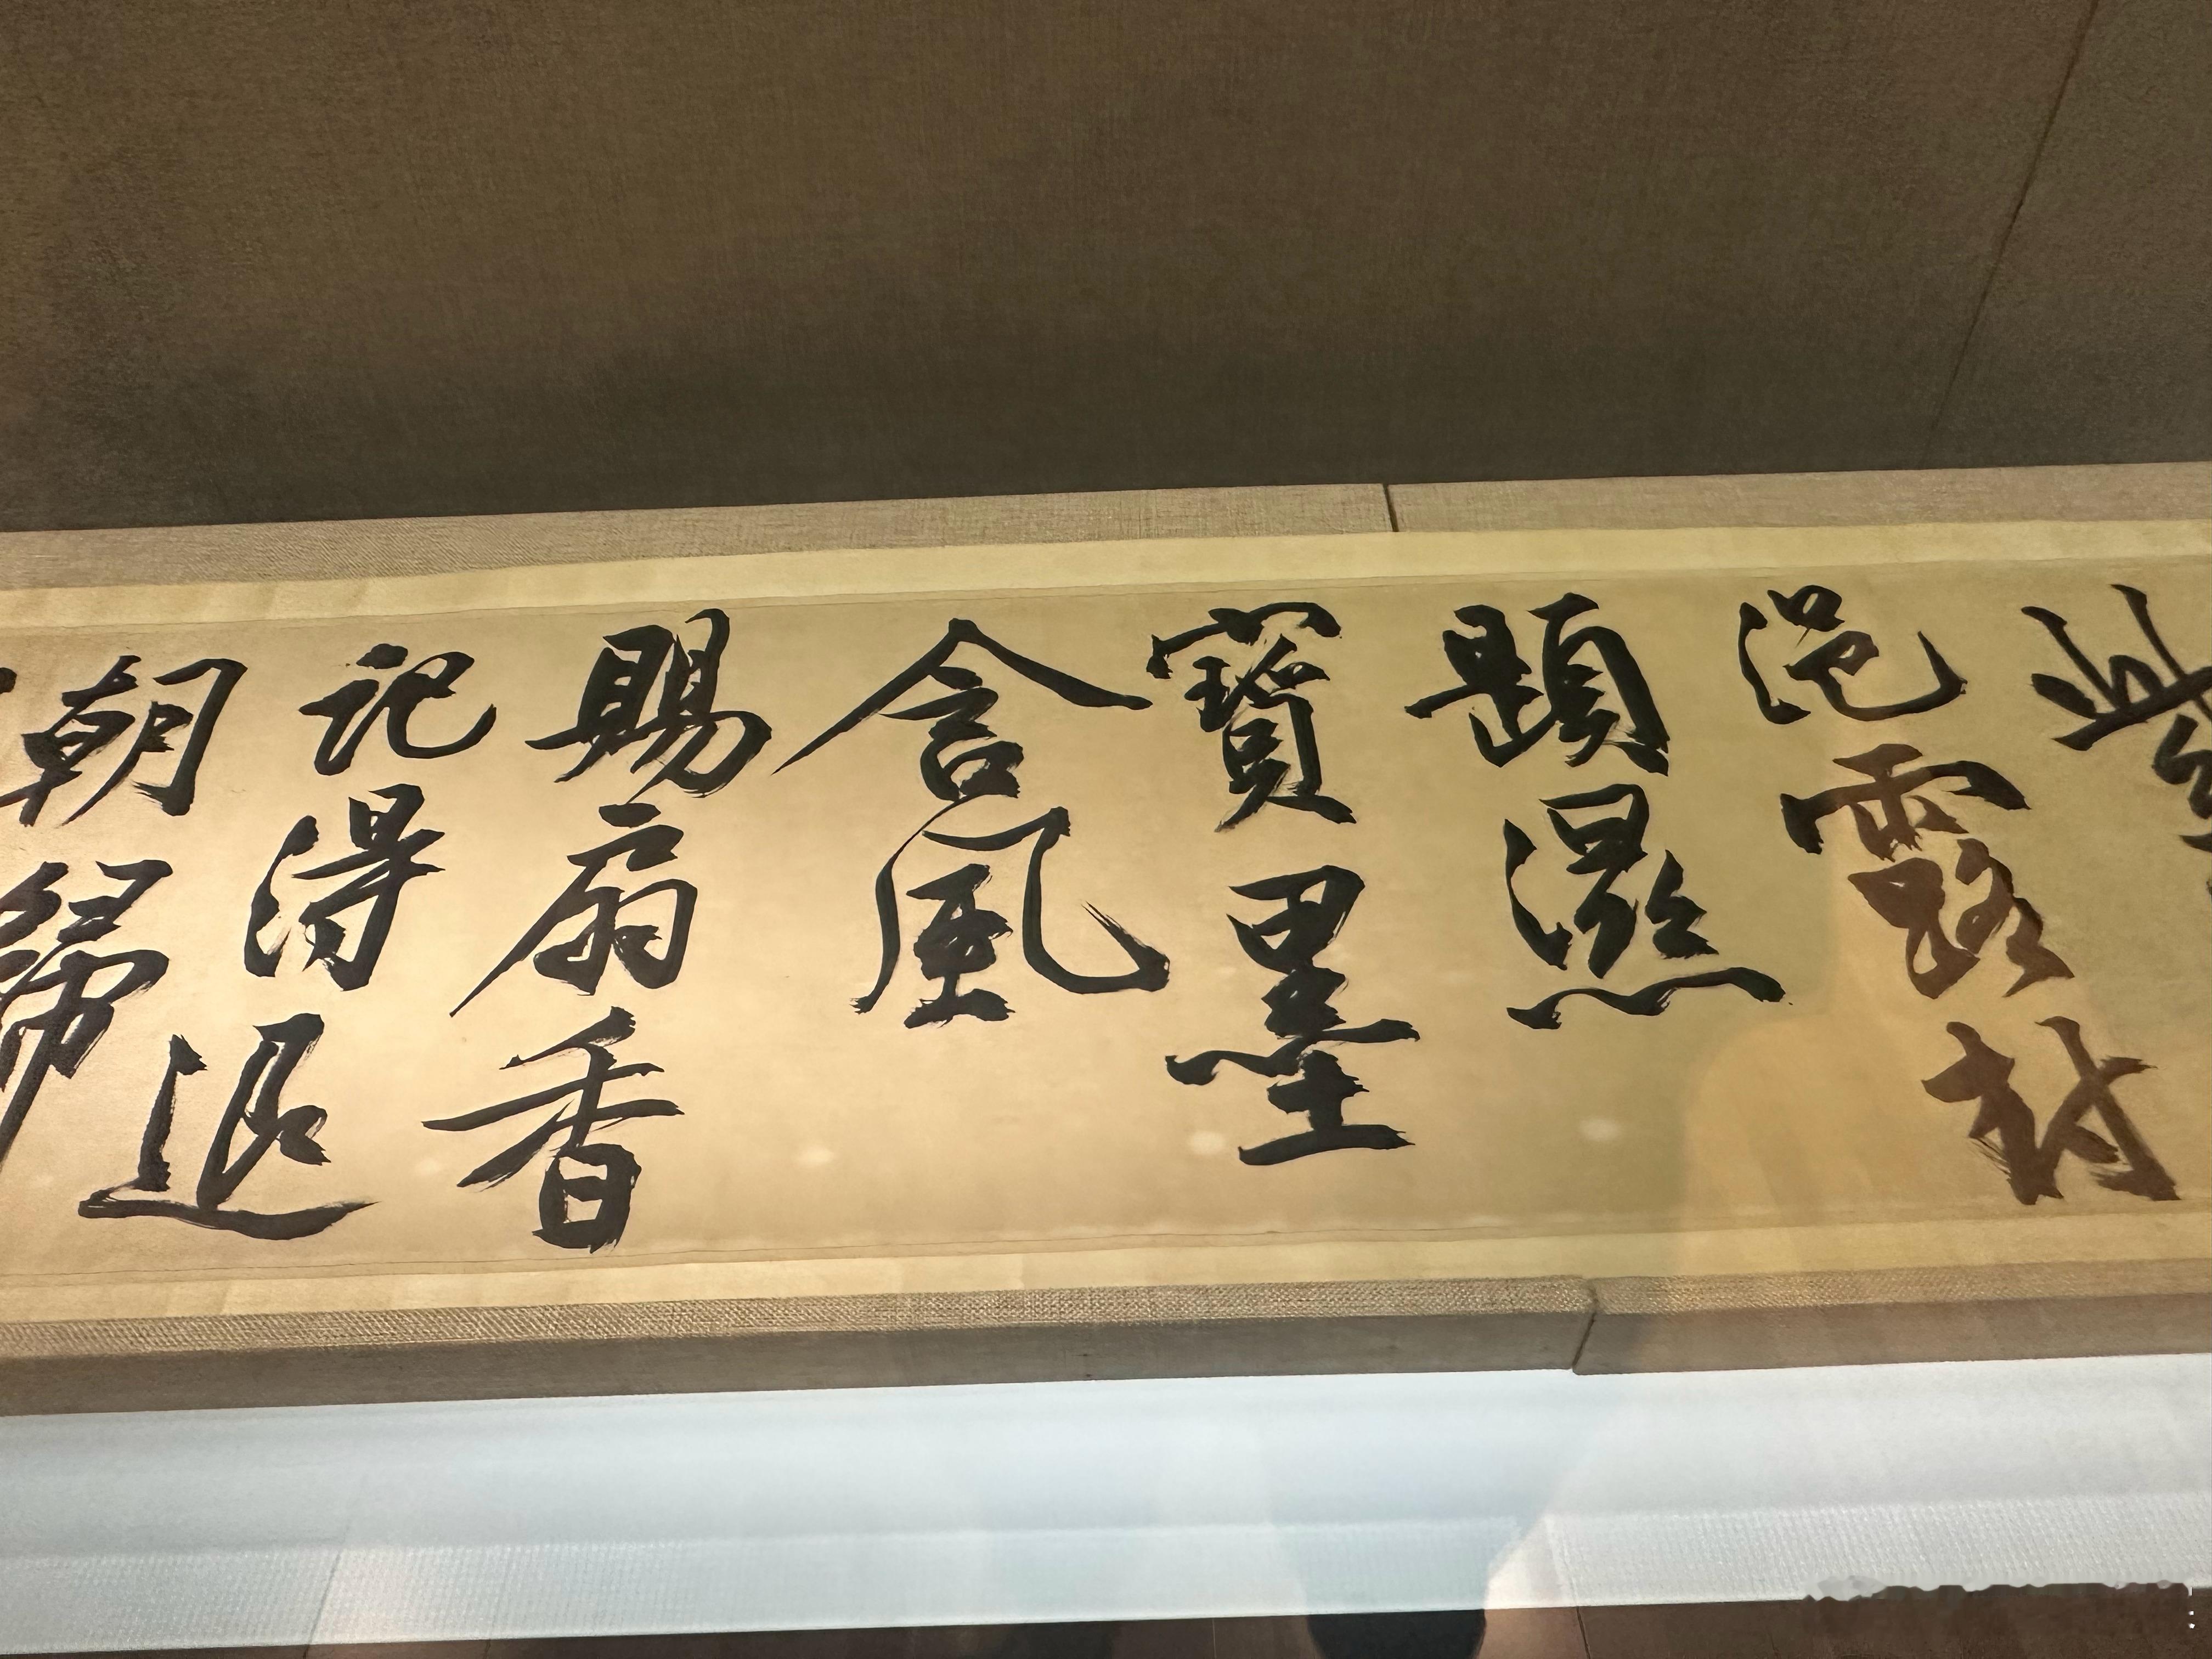 浥露封
題濕
寶墨
含風
賜扇香
記得退
朝歸